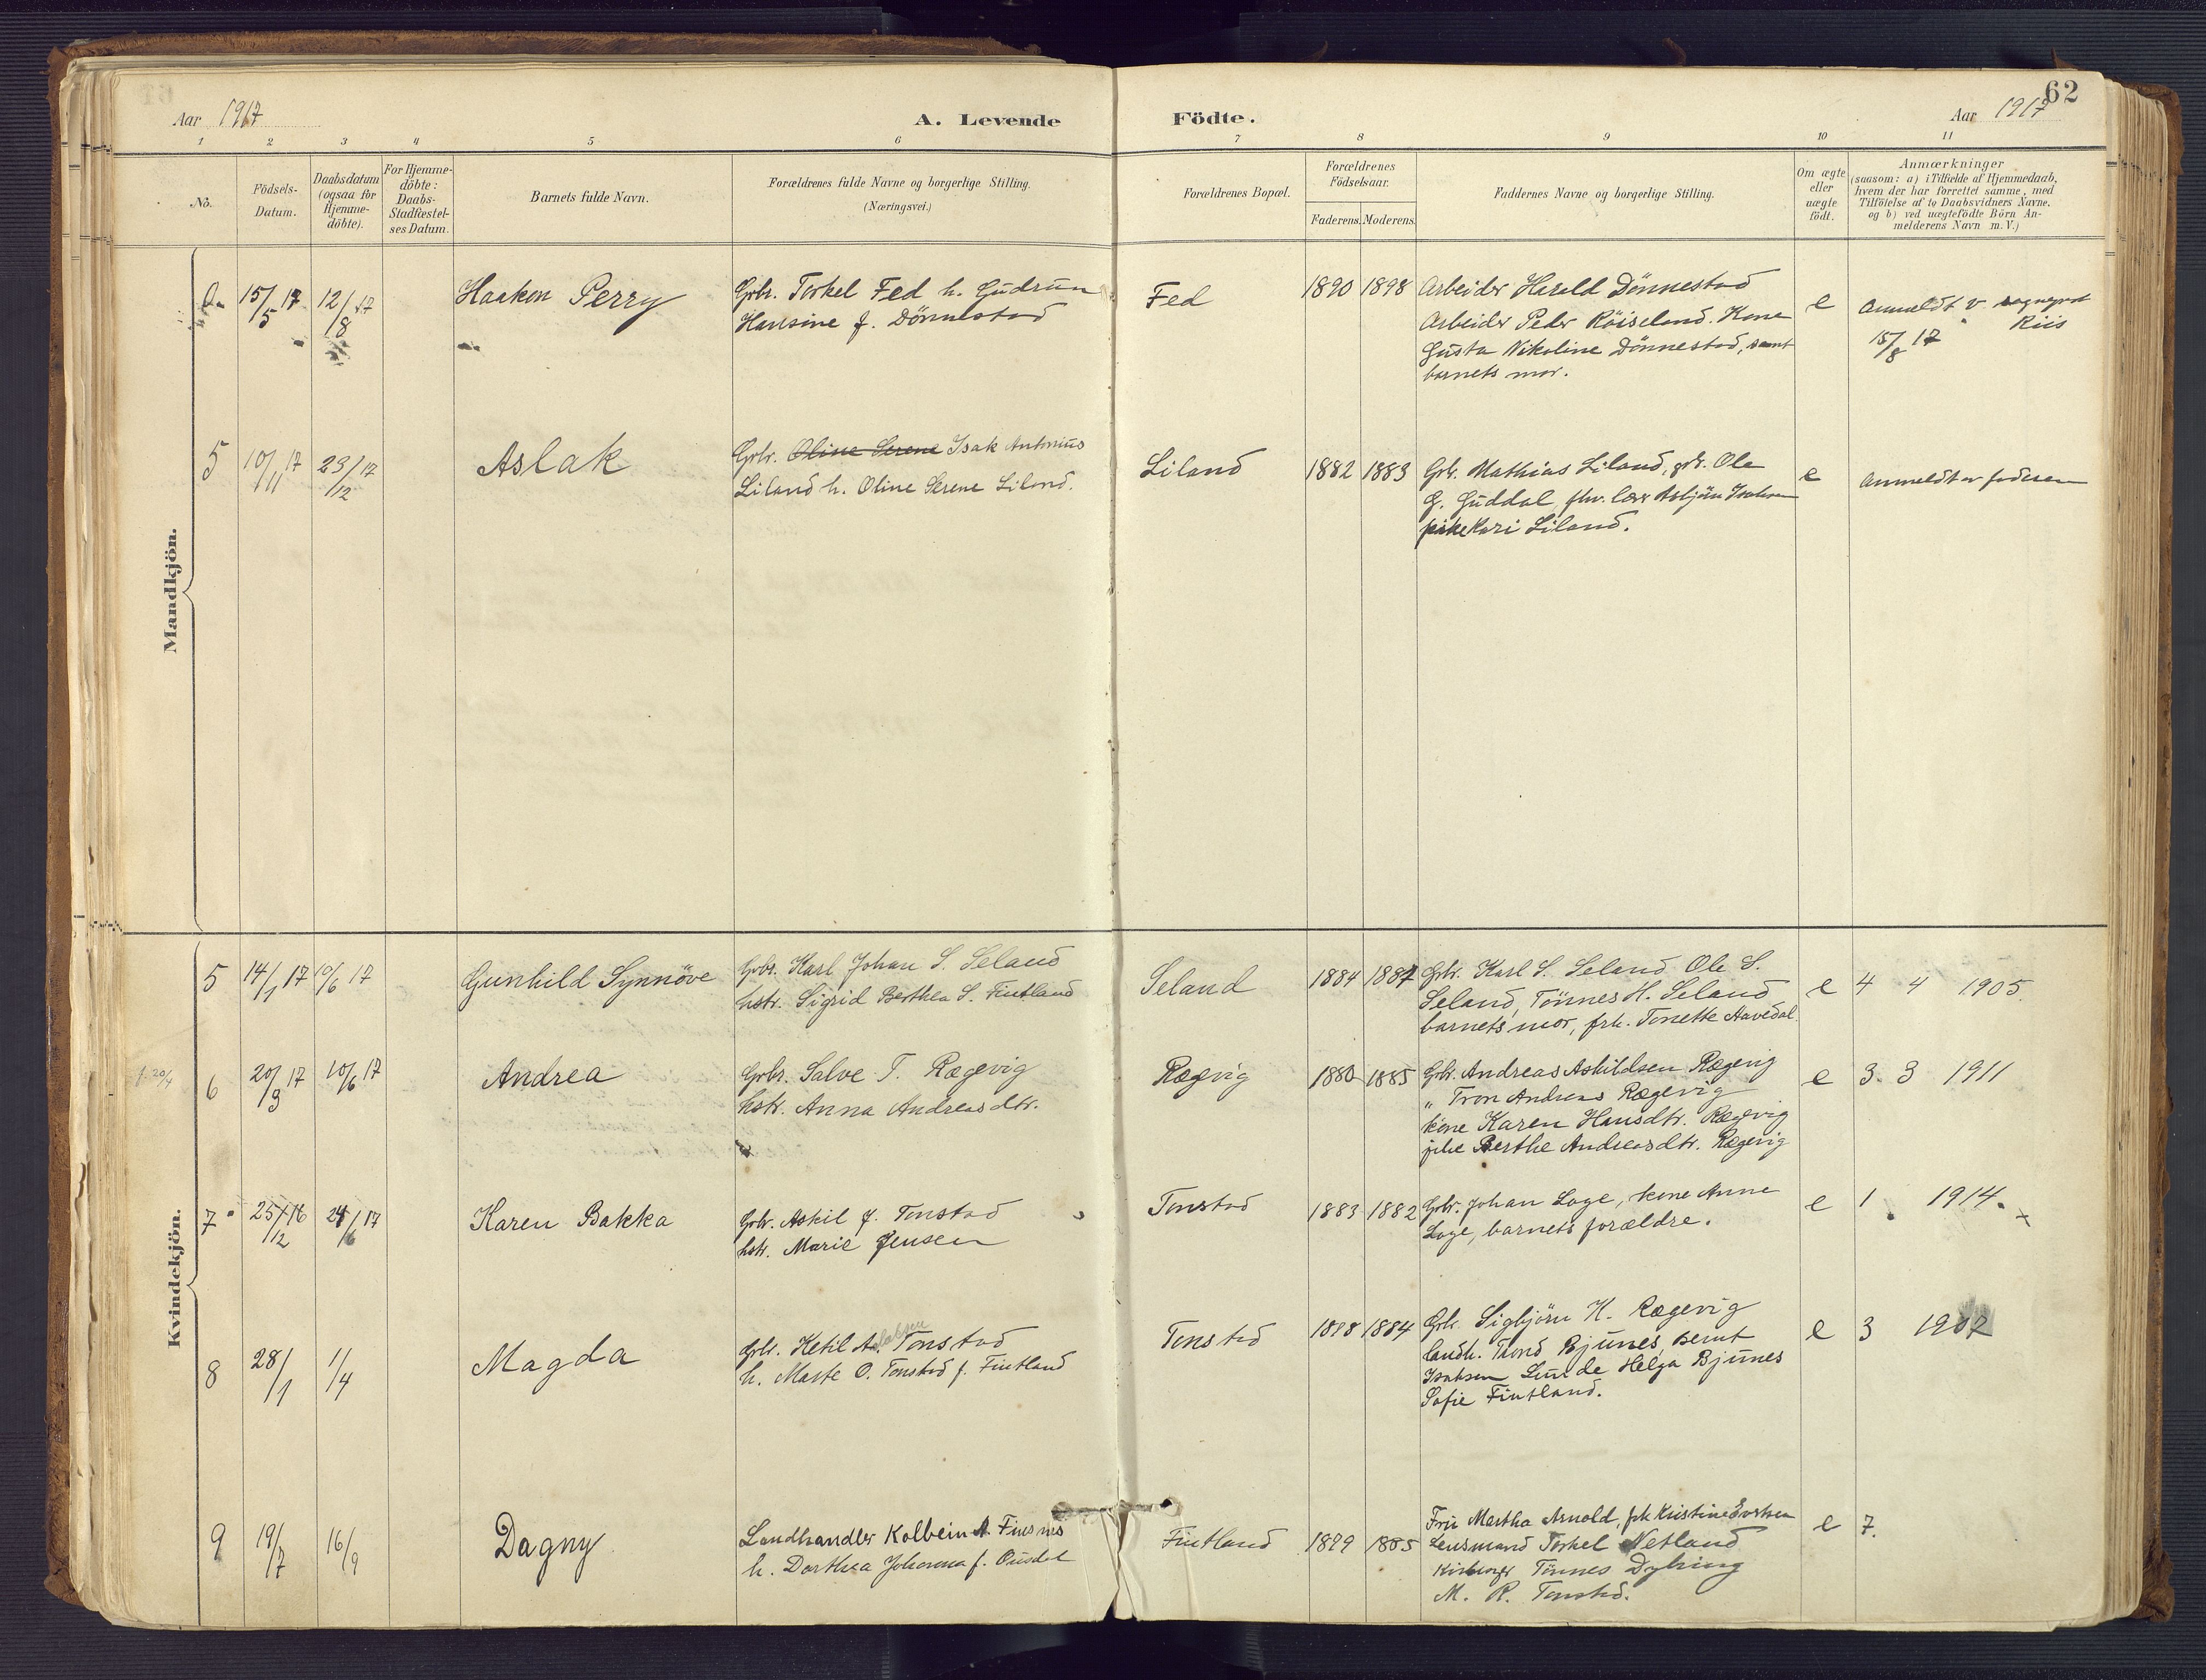 62
Aar 1917
A. Levende
Födte.
Aar 1917
1 2 3 4 5 6 7 8 9 10 11
No.
Födsels-
Datum.
Daabsdatum
(ogsaa for
Hjemme-
döbte).
For Hjemme-
döbte:
Daabs-
Stadfæstel-
ses Datum.
Barnets fulde Navn.
Forældrenes fulde Navne og borgerlige Stilling.
(Næringsvei.)
Forældrenes Bopæl.
Forældrenes
Födselsaar.
Faderens. Moderens.
Faddernes Navne og borgerlige Stilling.
Om ægte
eller
uægte
födt.
Anmærkninger
(saasom: a) i Tilfælde af Hjemmedaab,
hvem der har forrettet samme, med
Tilföielse af to Daabsvidners Navne.
og b) ved uægtefödte Börn An-
melderens Navn m.V.)
Mandkjön.
15/5 17 12/8 17
Haakon Perry
Grbr. Torkel Fed h. Gudrun
Hansine f. Dönnestad
Fed
1890 1898
Arbeider Harald Dönnestad
Arbeider Peder Röiseland. Kone
Gusta Nikoline Dönnestad, samt
barnets mor.
e
Anmeldt v. sogneprst
Riis
15/8 17
5 10/11 17 23/12 17
Aslak
Grbr. Oline Serene Isak Antonius
Liland h. Oline Serene Liland.
Liland
1882 1883
Grb. Mathias Liland, grb. Ole
G. Guddal, fhv. lærer Asbjörn Isaksen
pike Kari Liland.
e
Anmeldt av faderen
Kvindekjön.
5 14/1 17 10/6 17
Gunhild Synnöve
Grbr. Karl Johan S. Seland
hstr. Sigrid Berthea S. Fintland
Seland
1884 1887
Grbr. Karl S. Seland Ole S.
Seland, Tönnes H. Seland
barnets mor, frk. Tonette Aavedal.
e
4 4 1905.
f. 20/4
6 20/3 17 10/6 17
Andrea
Grbr. Salve T. Rægevig
hstr. Anna Andreasdtr.
Rægvig
1880 1885
Grb. Andreas Askildsen Rægevig
" Tron Andreas Rægevig
kone Karen Hansdtr. Rægevig
pike Berthe Andreasdtr. Rægevig
e
3. 3 1911
7 25/12 16 24/6 17
Karen Bakka
Grbr. Askil J. Tonstad
hstr. Marie Jensen
Tonstad
1883 1882
Grbr. Johan Loge, kone Anne
Loge, barnets forældre.
e
1. 1914.
8 28/1 1/4
Magda
Grbr. Ketil A. Tonstad
h. Marte O. Tonstad f. Fintland
Tonstad
1884
Grb. Sigbjörn K. Rægevig
landh. Trond Bjunes, Bernt
Isaksen Lunde Helga Bjunes
Sofie Fintland.
e
3 1907
9 19/7 16/9
Dagny
Landhandler Kolbein A. Finsnes
h. Dorthea Johanna f. Ousdal
Fintland
Fru Martha Arnold, frk Kristine
Lensmand Torkel Netland
Kirkesanger Tönnes Dybing
M. R. Tonstad.
e
7.